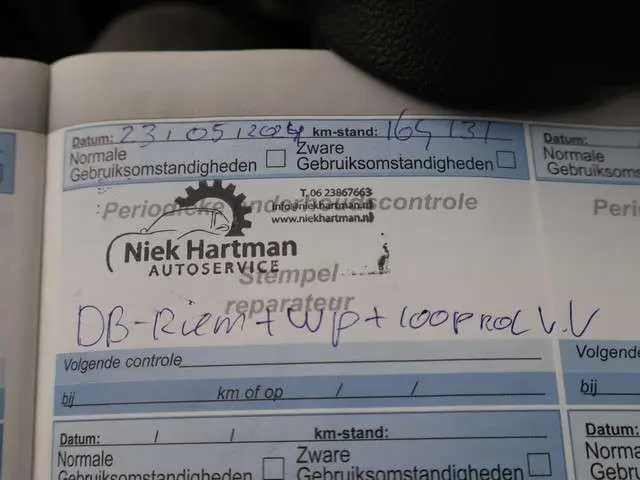 Datum: 23,05,2024 km-stand: 164131
Normale
Gebruiksomstandigheden
Zware
Gebruiksomstandigheden
Normale
Gebruiksomsta
T. 06 23867663
info@niekhartman.nl
www.niekhartman.nl
Periodieke onderhoudscontrole
Peri
Niek Hartman
AUTOSERVICE
Stempel
reparateur
DB-Riem + WP + LOOPROL V.V
Volgende controle
Volgende
bij km of op / /
bij
Datum: / / km-stand:
Datum:
Normale
Gebruiksomstandigheden
Zware
Gebruiksomstandigheden
Norma
Gebru